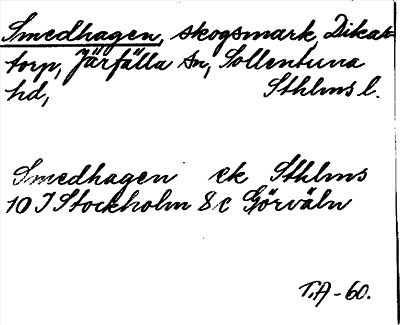 Smedhagen, skogsmark, Dikar-
torp, Järfälla sn, Sollentuna
hd, Sthlms l.
Smedhagen ek Sthlms
10 I Stockholm 8 c Görväln
T.A-60.